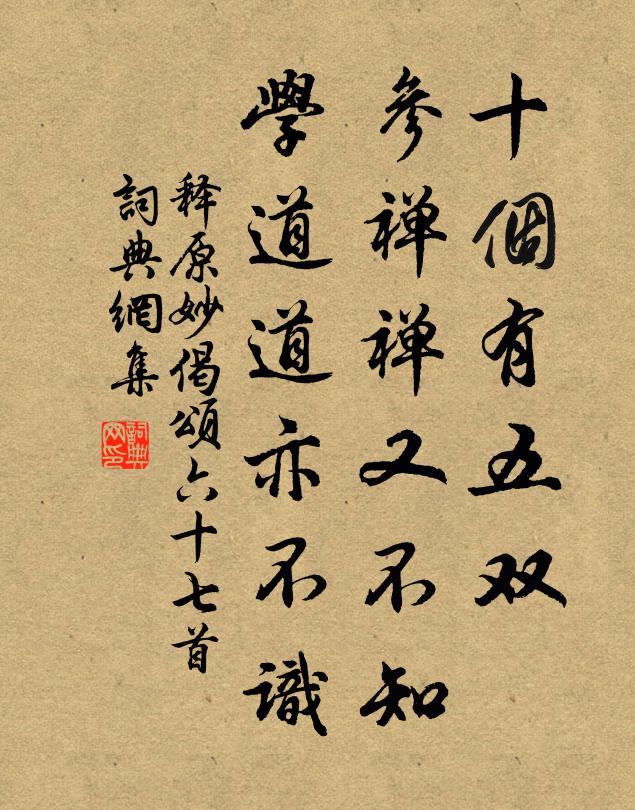 十個有五双
參禅禅又不知
學道道亦不識
释原妙偈頌六十七首
詞典網集
詞典网印